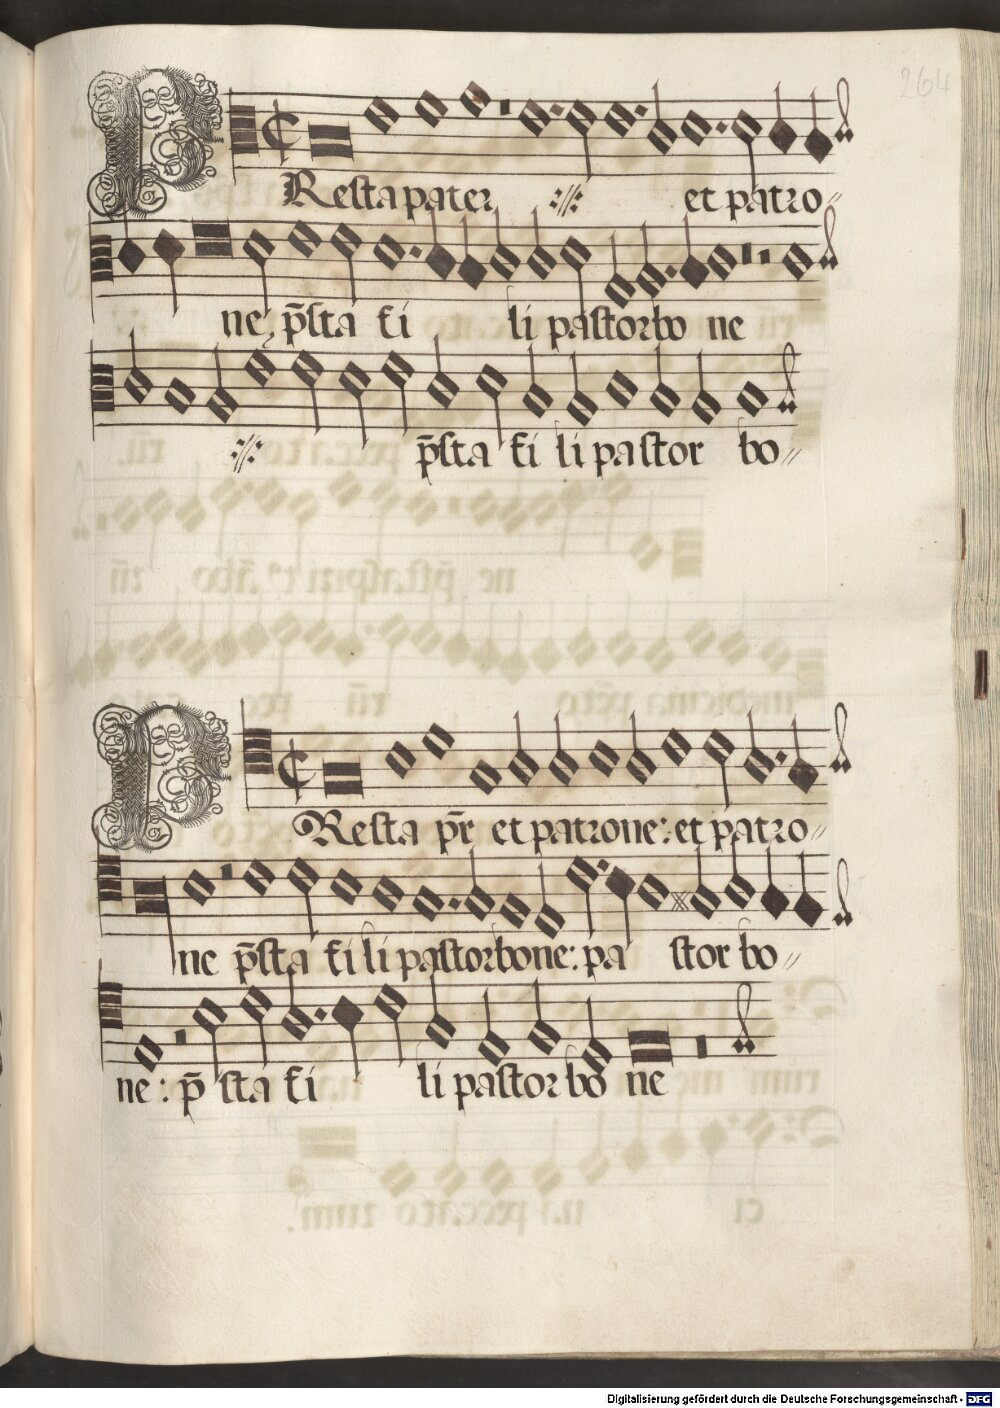 264
PRestapater ·//· et patro//
ne, p̄sta ti li pastorbo ne
·//· p̄sta ti li pastor bo//
PResta pr̄ et patrone: et patro//
ne p̄sta ti li pastorbone: pa stor bo//
ne: p̄ sta ti li pastor bo ne
Digitalisierung gefördert durch die Deutsche Forschungsgemeinschaft - DFG